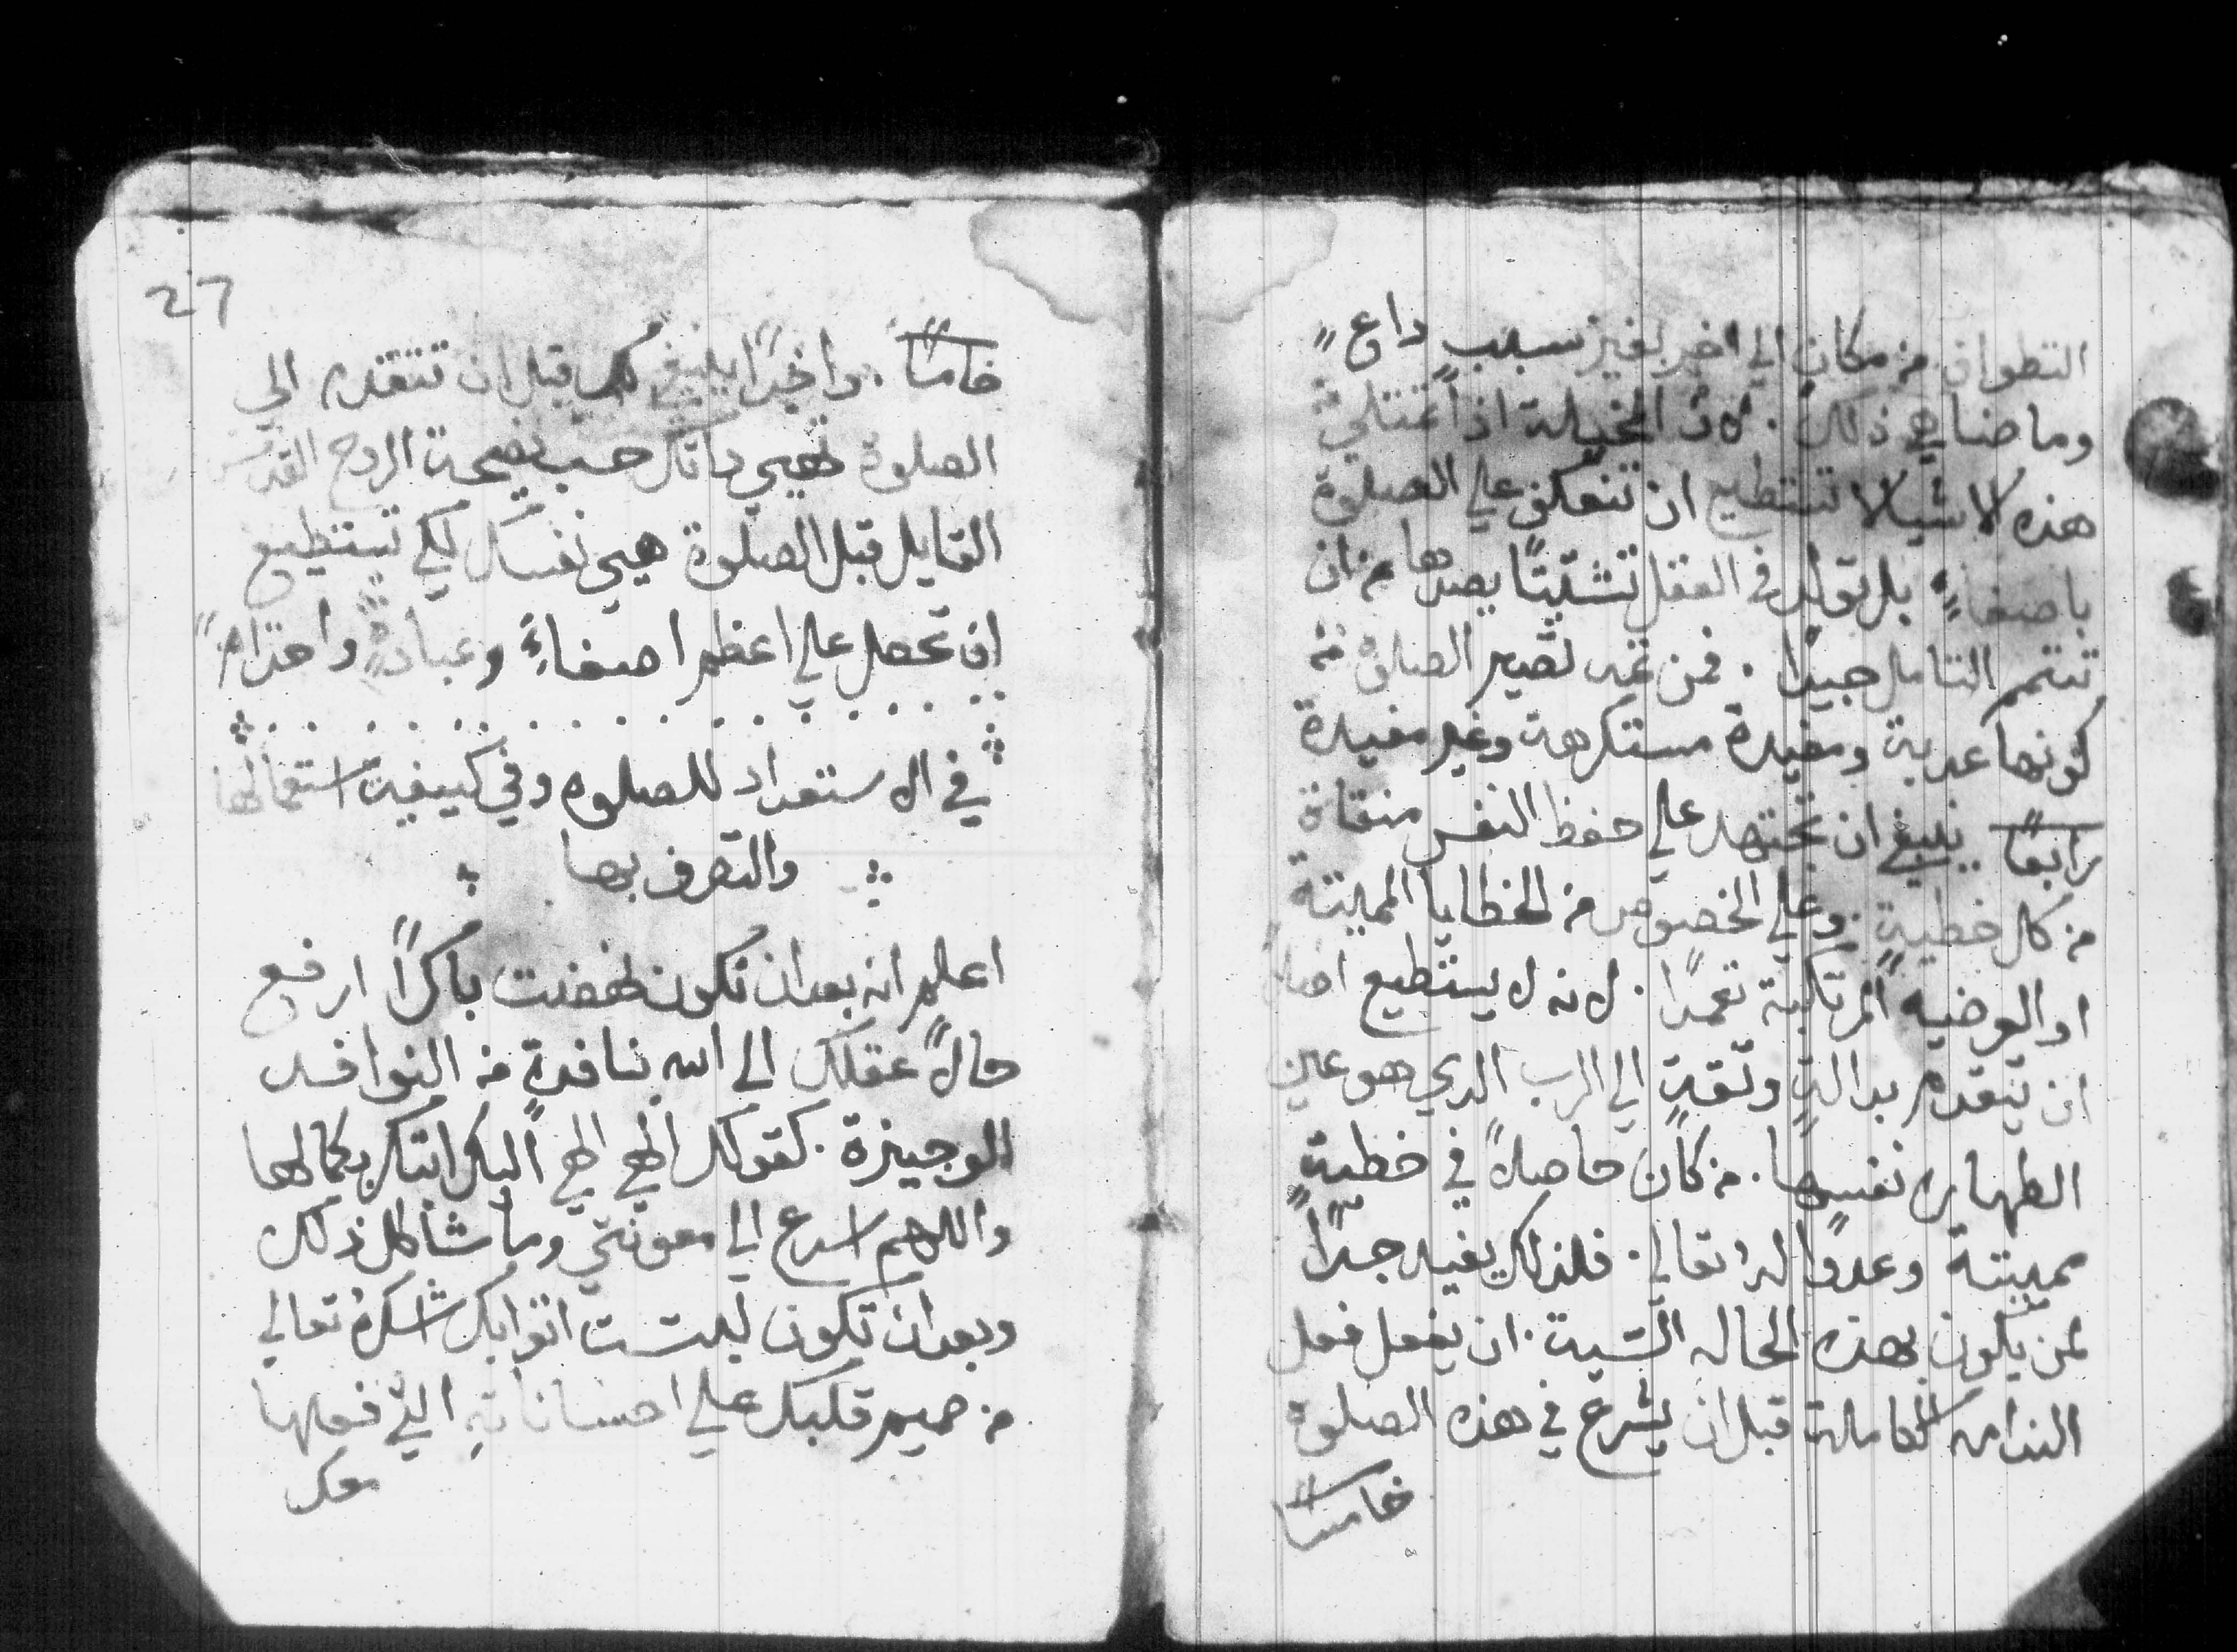 التطواف من مكانٍ الي اخر بغير سببٍ داعٍ
وما ضناهي ذلك. لان المخيلة اذا امتلت
هذه الاشيا لا تستطيع ان تنعكف علي الصلوة
باصغاءٍ بل تولد في العقل تشتيتًا يصدها من ان
تتمم التامل جيدًا. فمن ثمه تصير الصلوة من
كونها عدبة ومفيدة مستكرهة وغير مفيدة
رابعًا ينبغي ان تجتهد علي حفظ النفس منقاة
من كل خطيةٍ وعلي الخصوص من الخطايا المميتة
او العرضيه المرتكبة تعمدًا. لانه لا يستطيع اصلًا
ان يتقدم بدالةٍ وثقةٍ الي الرب الدي هو عين
الطهاره نفسها. من كان حاصلًا في خطيةٍ
مميتة وعدوًا له تعالي. فلذلك يفيد جدًا
لمن يكون بهذه الحاله الشية. ان يفعل فعل
الندامه الكاملة قبل ان يشرع في هذه الصلوة
خامسًا
27
خامسًا. واخيرًا ينبغي لك قبل ان تتقدم الي
الصلوة تهيي داتك حسب نصيحة الروح القدس
القايل قبل الصلوة هيي نفسك لكي تستطيع
ان تحصل علي اعظم اصغاءٍ وعبادةٍ واحترامٍ
في الاستعداد للصلوه وفي كيفية استعمالها
والتصرف بها
اعلم انه بعد ان تكون نهضت باكرًا ارفع
حالًا عقلك الي الله بنافدةٍ من النوافد
الوجيزة. كقولك الهي الهي اليك ابتكر بكمالها
واللهم اسرع الي معونتي وما شاكل ذلك
وبعد ان تكون لبست اثوابك اشكره تعالي
من صميم قلبك علي احساناته التي فعلها
معك